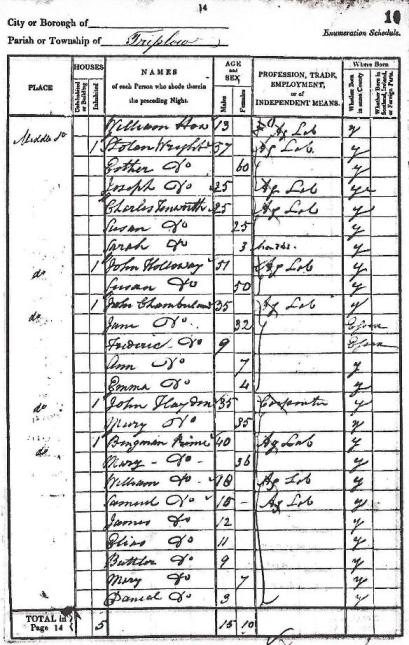 14
10
City or Borough of
Parish or Township of Triplow
Enumeration Schedule.
PLACE
HOUSES
Uninhabited or Building
Inhabited
NAMES
of each Person who abode therein the preceding Night.
AGE and SEX
Males
Females
PROFESSION, TRADE, EMPLOYMENT, or of INDEPENDENT MEANS.
Where Born
Whether Born in same County
Whether Born in Scotland, Ireland, or Foreign Parts.
William 13 Ag Lab y
Middle 1 Wright 57 Ag Lab y
Esther Do 60 y
Joseph Do 25 Ag Lab y
Charles 25 Ag Lab y
Susan Do 25 y
Sarah Do 3 months y
do 1 John Holloway 51 Ag Lab y
Susan Do 50 y
do 1 John Chamberlain 35 Ag Lab y
Jane Do 32
Frederic Do 9
Ann Do 7 y
Emma Do 4 y
do 1 John Haydon 35 Carpenter y
Mary Do 35 y
do 1 Bingman Prime 40 Ag Lab y
Mary - Do - 36 y
William Do 18 Ag Lab y
Samuel Do 15 - Ag Lab y
James Do 12 y
Elias Do 11 y
Do 9 y
Mary Do 7 y
Daniel Do 3 y
TOTAL in Page 14 5 15 10